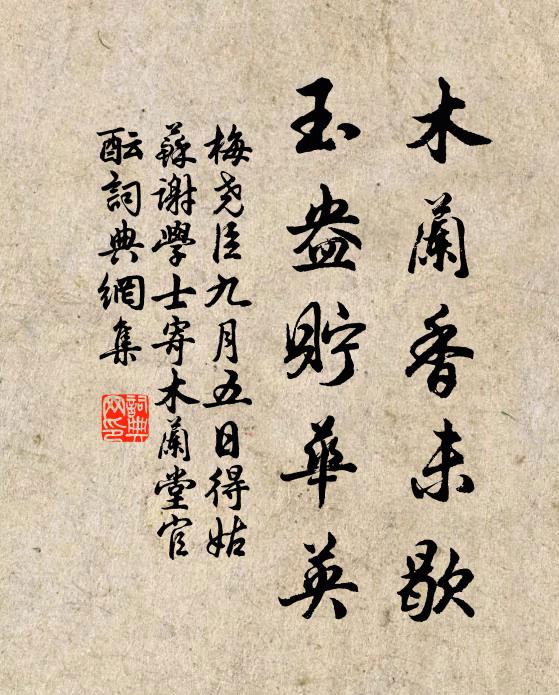 木蘭香未歇
玉盎貯華英
梅堯臣九月五日得姑
蘇謝學士寄木蘭堂官
酝詞典網集
詞典
网印